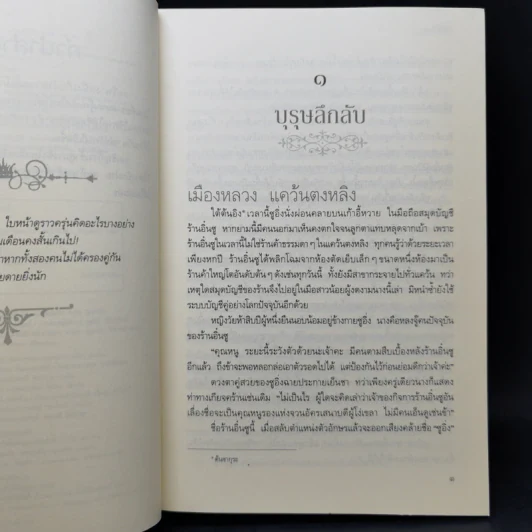 ใบหน้าดูราวครุ่นคิดอะไรบางอย่าง
เตือนคงสั้นเกินไป!
าหากทั้งสองคนไม่ได้ครองคู่กัน
ยตายยิ่งนัก
๑
บุรุษลึกลับ
เมืองหลวง แคว้นตงหลิง
ใต้ต้นอิง* เวลานี้ซูอิงนั่งผ่อนคลายบนเก้าอี้หวาย ในมือถือสมุดบัญชี
ร้านอิ่นซู หากยามนี้มีคนนอกมาเห็นคงตกใจจนลูกตาแทบหลุดจากเบ้า เพราะ
ร้านอิ่นซูในเวลานี้ไม่ใช่ร้านค้าธรรมดา ๆ ในแคว้นตงหลิง ทุกคนรู้ว่าด้วยระยะเวลา
เพียงหกปี ร้านอิ่นซูได้พลิกโฉมจากห้องตัดเย็บเล็ก ๆ ขนาดหนึ่งห้องมาเป็น
ร้านค้าใหญ่โตอันดับต้น ๆ ดังเช่นทุกวันนี้ ทั้งยังมีสาขากระจายไปทั่วแคว้น ทว่า
เหตุใดสมุดบัญชีของร้านจึงไปอยู่ในมือสาวน้อยผู้งดงามนางนี้เล่า มิหนำซ้ำยังใช้
ระบบบัญชีคู่อย่างโลกปัจจุบันอีกด้วย
หญิงวัยห้าสิบปีผู้หนึ่งยืนนอบน้อมอยู่ข้างกายซูอิง นางคือหลงจู๊คนปัจจุบัน
ของร้านอิ่นซู
"คุณหนู ระยะนี้ระวังตัวด้วยนะเจ้าคะ มีคนตามสืบเบื้องหลังร้านอิ่นซู
อีกแล้ว ถึงข้าจะพอหลอกล่อเอาตัวรอดไปได้ แต่ป้องกันไว้ก่อนย่อมดีกว่าเจ้าค่ะ"
ดวงตาคู่สวยของซูอิงฉายประกายเย็นชา ทว่าเพียงครู่เดียวนางก็แสดง
ท่าทางเกียจคร้านเช่นเดิม "ไม่เป็นไร ผู้ใดจะคิดเล่าว่าเจ้าของกิจการร้านอิ่นซูอัน
เลื่องชื่อจะเป็นคุณหนูรองแห่งจวนอัครเสนาบดีผู้โง่เขลา ไม่มีคนเอ็นดูเช่นข้า"
ชื่อร้านอิ่นซูนี้ เมื่อสลับตำแหน่งตัวอักษรแล้วจะออกเสียงคล้ายชื่อ "ซูอิง"
* ต้นซากุระ